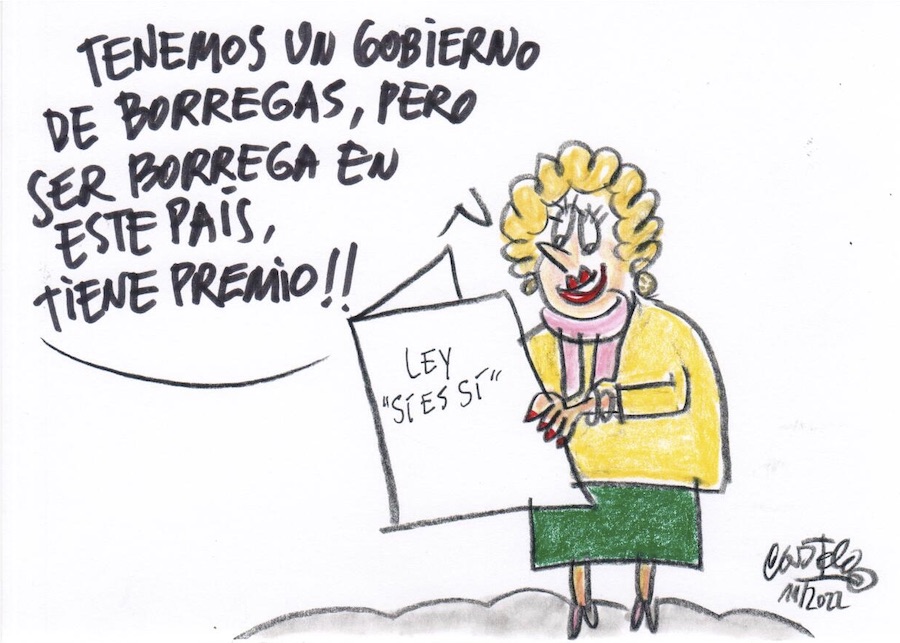 TENEMOS UN GOBIERNO
DE BORREGAS, PERO
SER BORREGA EN
ESTE PAÍS,
TIENE PREMIO!!
LEY
"SÍ ES SÍ"
11/2022